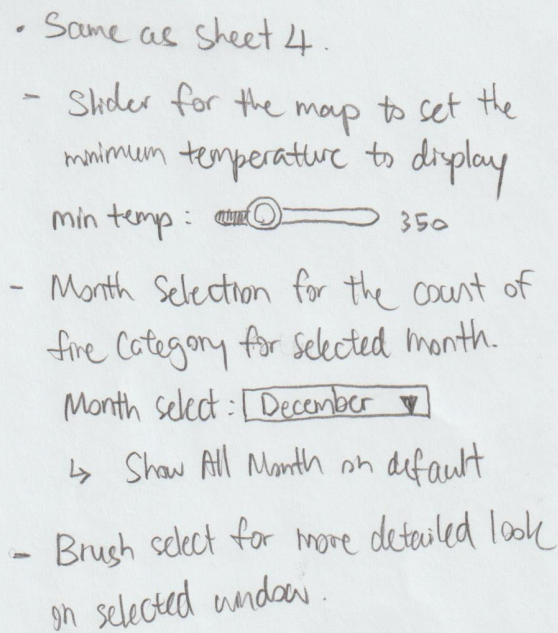 • Same as sheet 4.
- Slider for the map to set the
minimum temperature to display
min temp : 350
- Month Selection for the count of
fire Category for selected month.
Month select : December ▼
↳ Show All Month on default
- Brush select for more detailed look
on selected window.